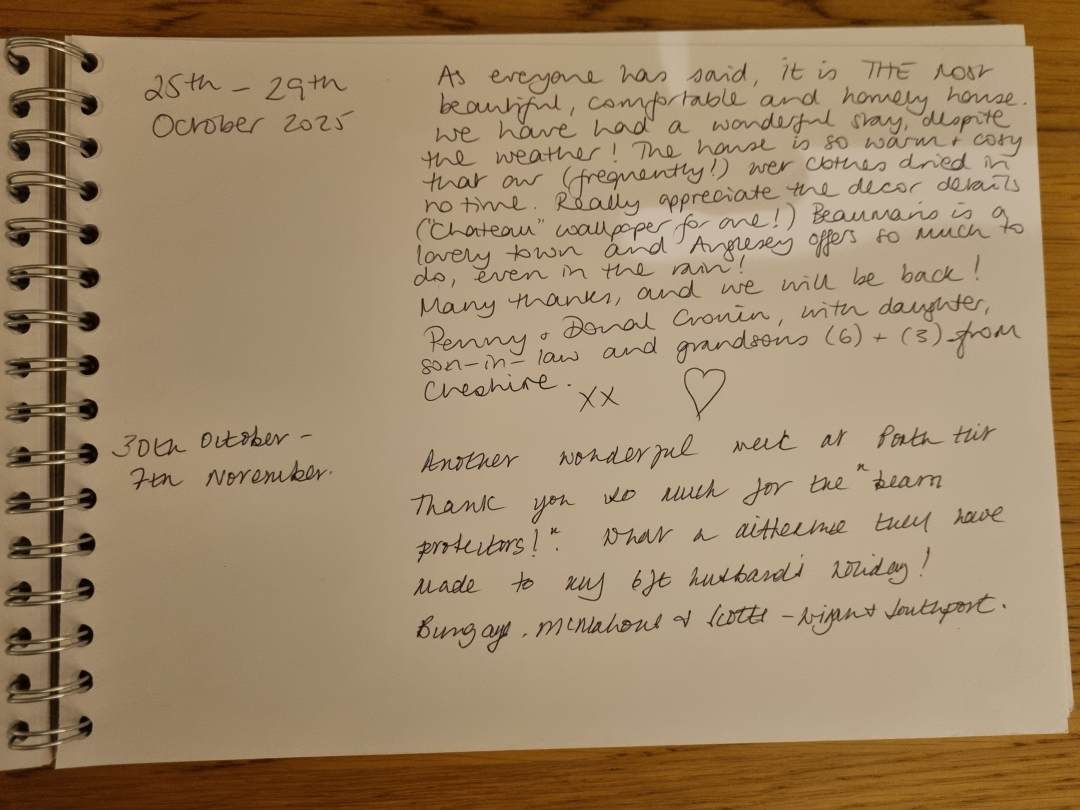 25th - 29th
October 2025
As everyone has said, it is THE most
beautiful, comfortable and homely house.
We have had a wonderful stay, despite
the weather! The house is so warm + cosy
that our (frequently!) wet clothes dried in
no time. Really appreciate the decor details
("Chateau" wallpaper for one!) Beaumaris is a
lovely town and Anglesey offers so much to
do, even in the rain!
Many thanks, and we will be back!
Penny + Donal Cronin, with daughter,
son-in-law and grandsons (6) + (3) from
Cheshire.
XX
30th October -
7th November.
Another wonderful week at Porth Hir
Thank you so much for the "beam
protectors!". What a difference they have
made to my 6ft husband's holiday!
McMahons & Scotts - Wigan & Southport.